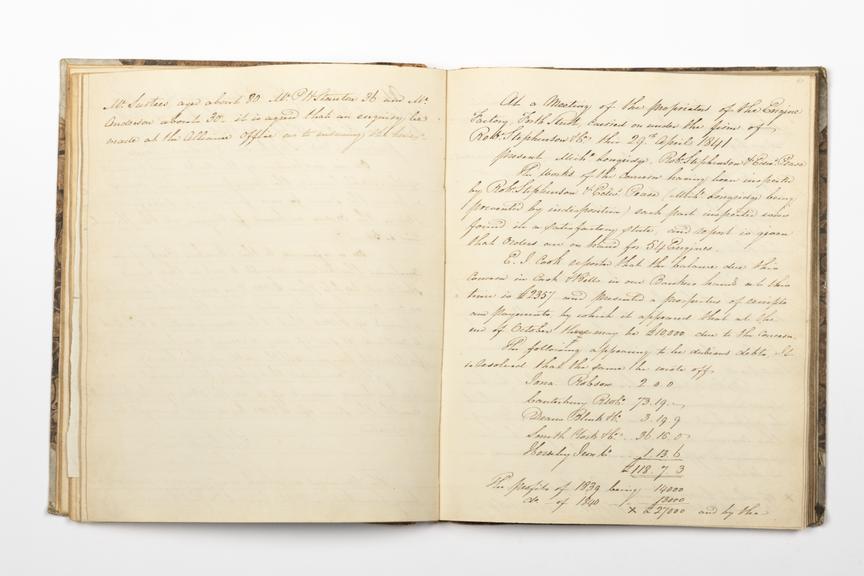 Mr. Sustees aged about 80. Mr. P W Staunton 36 and Mr.
Anderson about 30. it is agreed that an enquiry be
made at the Alliance Office as to ensuring the lives
At a Meeting of the proprietors of the Engine
Factory Forth Street carried on under the firm of
Robt. Stephenson & Co. this 29th April 1841
present Michl. Longridge, Robt. Stephenson & Edwd. Pease
The Works of the Concern having been inspected
by Robt. Stephenson & Edwd. Pease (Michl. Longridge being
prevented by indisposition) each part inspected was
found in a satisfactory state, and report is given
that Orders are on hand for 54 Engines.
E. J. Cook reported that the balance due this
Concern in Cash & Bills in our Bankers hands at this
time is £2357 and presented a prospectus of receipts
and payments, by which it appeared that at the
end of October there may be £10,000 due to the Concern.
The following appearing to be dubious debts It
is Resolved that the same be wrote off
Jona. Robson 2 . 0 . 0
Canterbury 73 . 19 . -
3 . 19 . 9
36 . 15 . 0
Iron Co. 1 . 13 . 6
£118 . 7 . 3
The profits of 1839 being 14000
do. of 1840 13000
x £27000 and by the